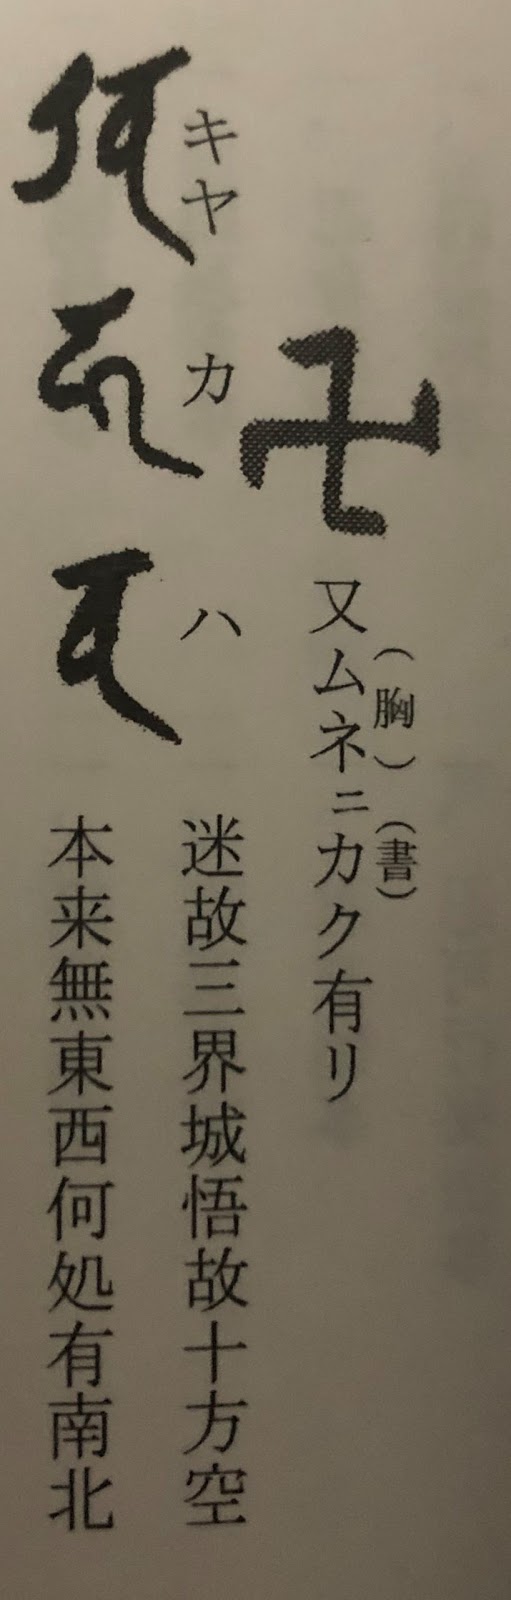 卍 又ムネニカク有リ
(胸)(書)
キヤ カ ハ
迷故三界城悟故十方空
本来無東西何処有南北